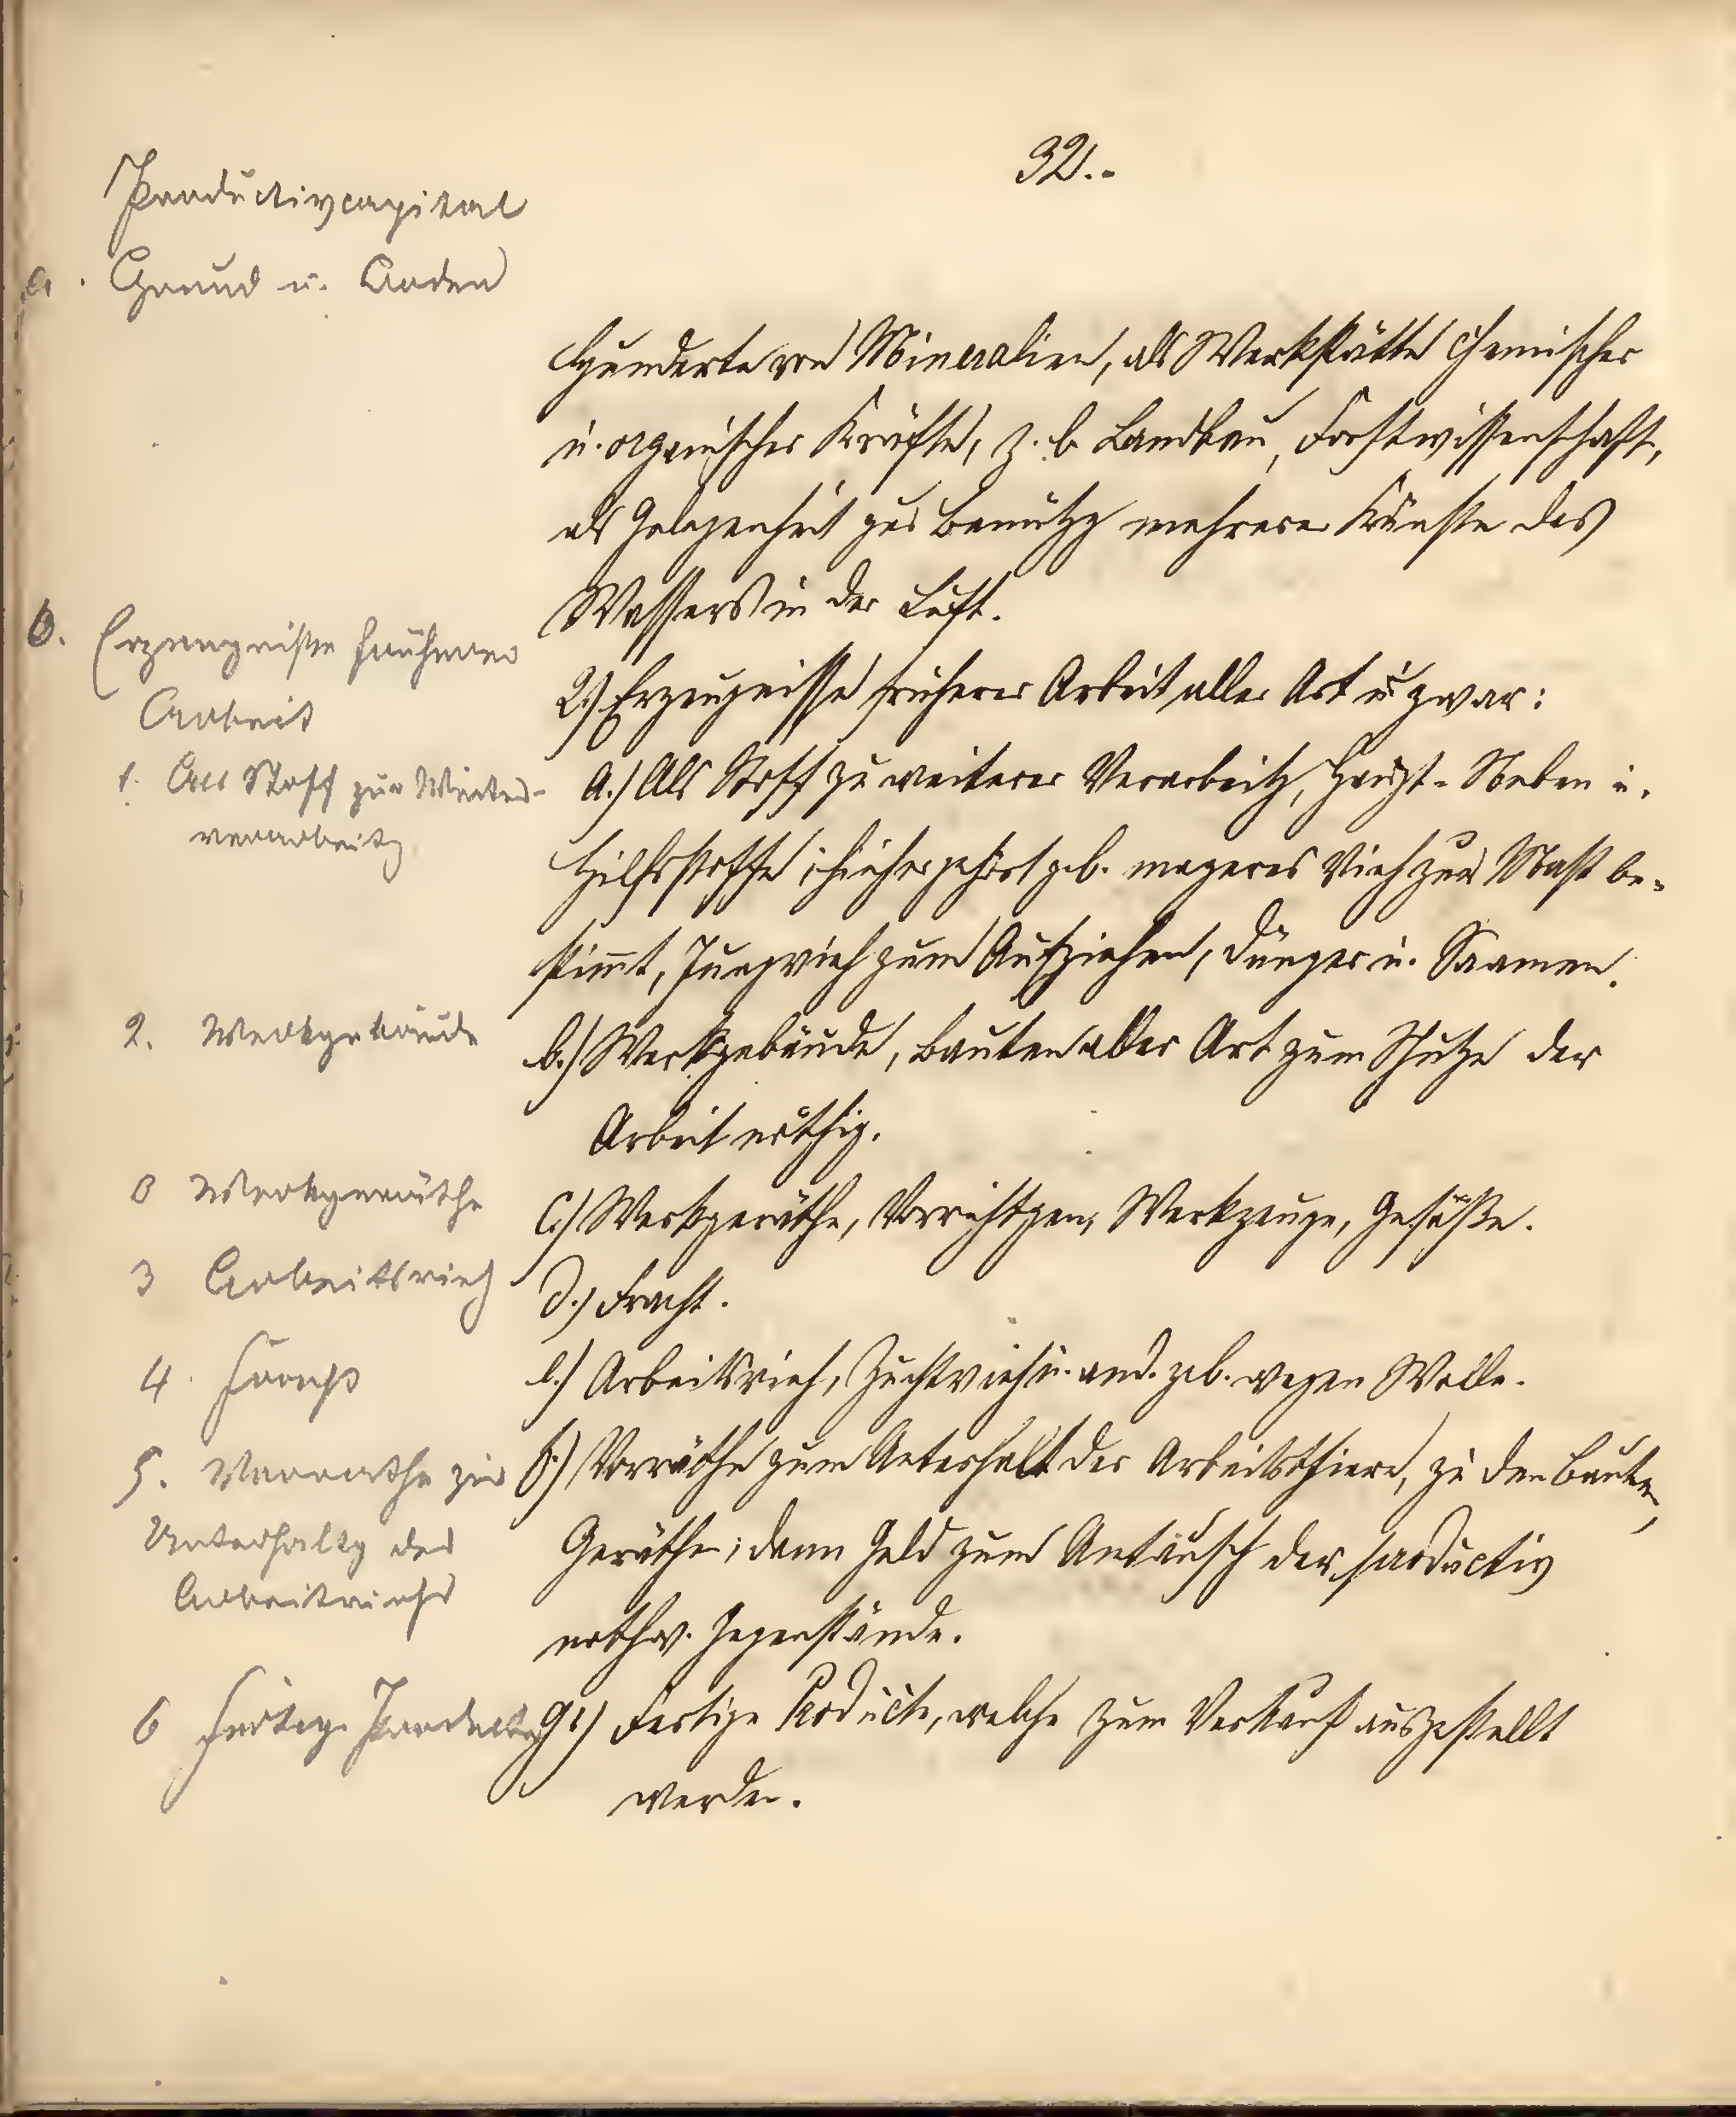 32.
Productivcapital
a. Grund u. Boden
Hunderte von Mineralien, als Werkstätte chemischer
u. organischer Kräfte, z. b. Landbau, Forstwissenschaft,
als Gelegenheit zur Benützg mehrerer Künste des
Wassers in der Luft.
b. Erzeugnisse früherer
Arbeit
2.) Erzeugnisse früherer Arbeit aller Art u zwar:
1. Als Stoff zur Weiter-
verarbeitg
a.) Als Stoff zu weiterer Verarbeitg, Haupt- Neben u.
Hilfsstoffe; hieher gehört z.b. mageres Vieh zur Mast be-
stimt, Jungvieh zum Aufziehen, Dünger u. Saamen.
2. Werkgebäude
b.) Werkgebäude, Bauten aller Art zum Schutze der
Arbeit nöthig.
Werkgeräthe
c.) Werkgeräthe, Vorrichtgen, Werkzeuge, Gefäße.
3 Arbeitsvieh
d.) Fracht.
4.
e.) Arbeitsvieh, Zuchtvieh u. and. z.b. wegen Wolle.
5. Vorräthe zur
Unterhaltg des
Arbeitviehs
f.) Vorräthe zum Unterhalt der Arbeitsthiere, zu den Bauten,
Geräthe; dann Geld zum Antausch der productiv
nothw. Gegenstände.
6 Fertige Producte
g.) Fertige Producte, welche zum Verkauf ausgestellt
werden.